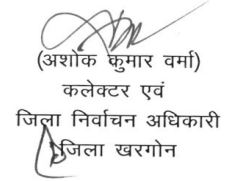 (अशोक कुमार वर्मा)
कलेक्टर एवं
जिला निर्वाचन अधिकारी
जिला खरगोन